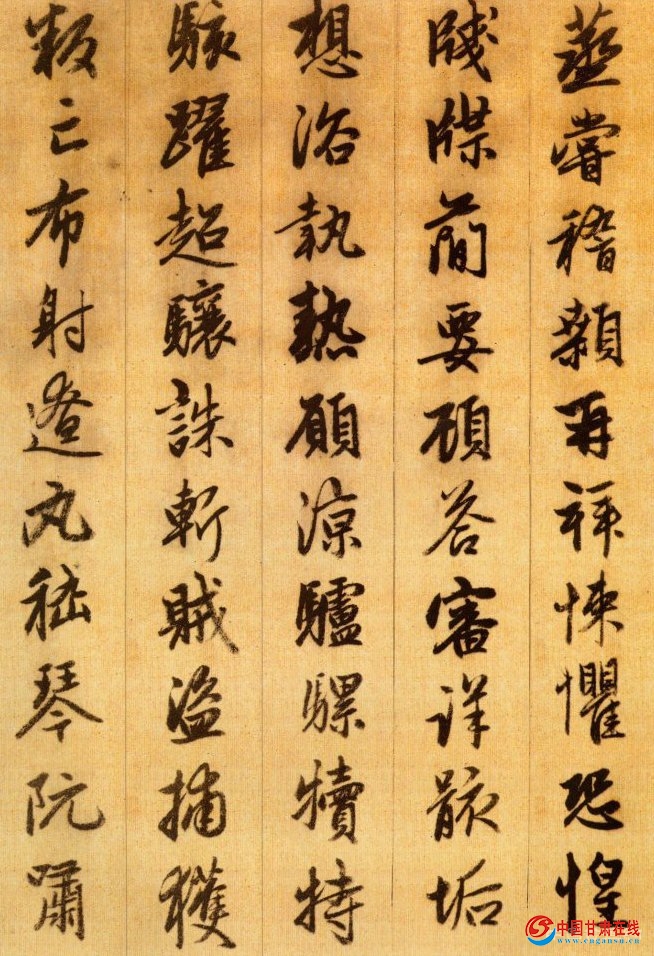 蒸嘗稽顙再拜悚懼恐惶
牋牒簡要顧答審詳骸垢
想浴執熱願涼驢騾犢特
駭躍超驤誅斬賊盜捕獲
叛亡布射遼丸嵇琴阮嘯
中国甘肃在线
www.cngansu.cn